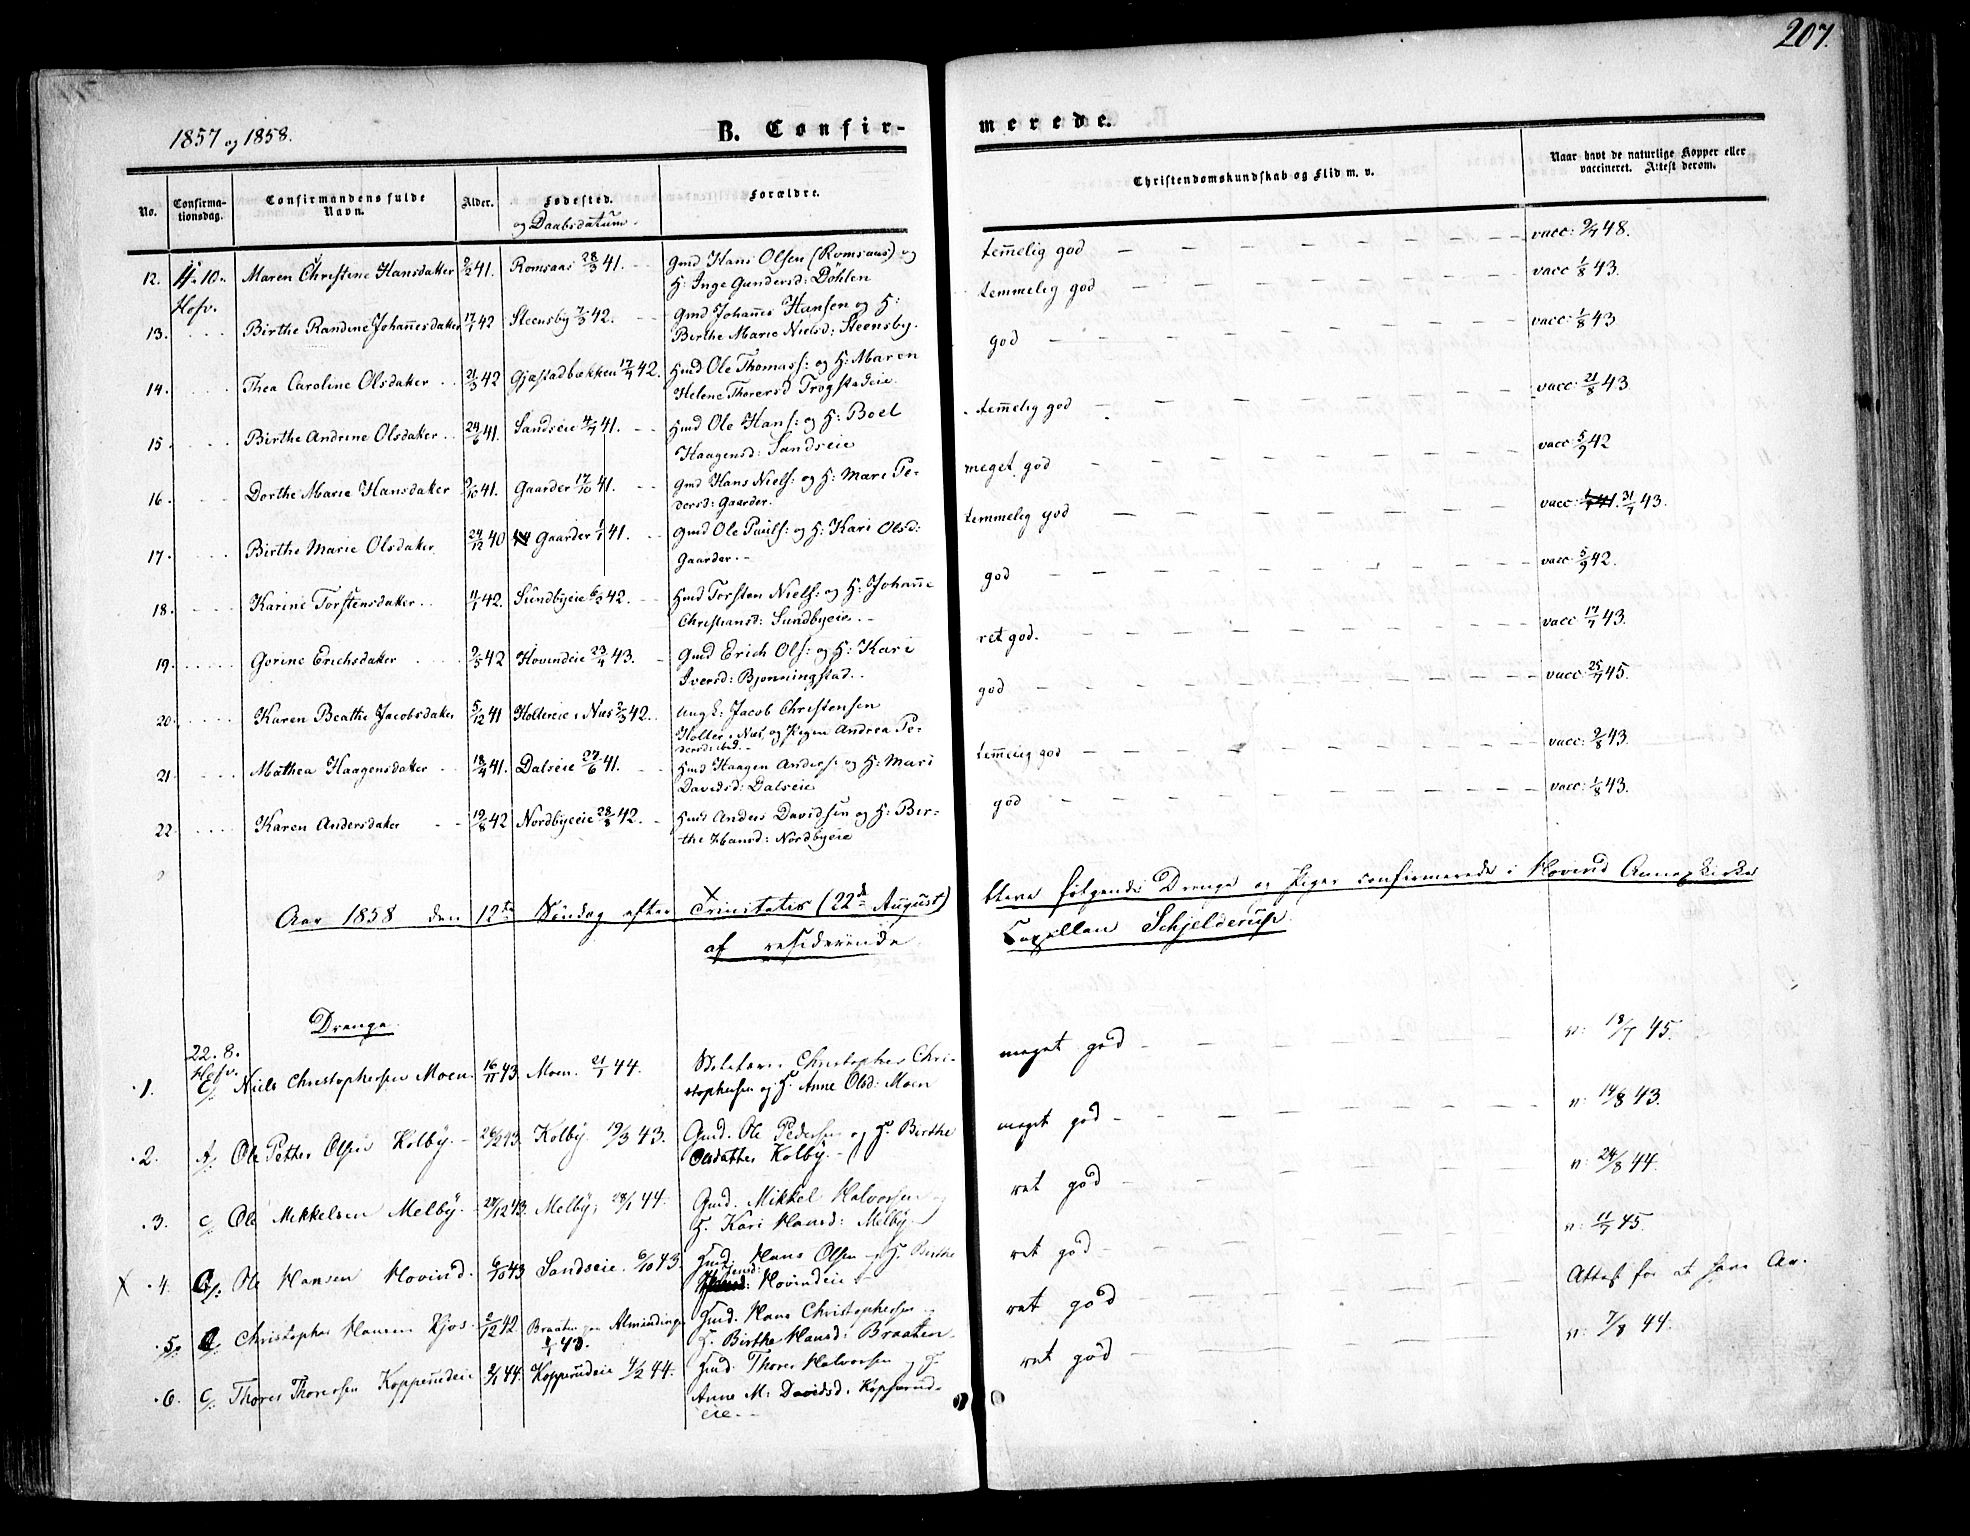 207.
1857 og 1858.
B. Confir-
merede.
No.
Confirma-
tionsdag.
Confirmandens fulde
Navn.
Alder.
Fødested.
og Daabsdatum.
Forældre.
Christendomskundskab og Flid m. v.
Naar havt de naturlige Kopper eller
vaccineret. Attest derom.
12. 4. 10. Maren Christine Hansdatter 41. Romsaas 28/3 41. Gmd Hans Olsen (Romsaas) og temmelig god vacc: 48.
Hofv. H: Inge Gundersd: Döhlen
13. Birthe Randine Johannesdatter 17/1 42 Steensby 42. Gmd Johannes Hansen og H: temmelig god vacc 1/8 43.
Birthe Marie Nielsd: Steensby.
14. Thea Caroline Olsdatter 21/3 42 Gjæstadbækken 17/4 42. Hmd Ole Thomass: og H: Maren god vacc: 1/8 43
Helene Thorersd Trøgstadeie.
15. Birthe Andrine Olsdatter 41. Sandseie 4/7 41. Hmd Ole Hans: og H: Boel temmelig god vacc: 21/8 43.
Haagensd: Sandseie
16. Dorthe Marie Hansdatter 41. Gaarder 17/10 41. Gmd Hans Niels: og H: Mari Pe- meget god vacc: 5/9 42
dersd: Gaarder.
17. Birthe Marie Olsdatter 24/12 40 Gaarder 1/1 41. Gmd Ole Pauls: og H: Kari Olsd: temmelig god vacc: 31/7 43.
Gaarder.
18. Karine Torstensdatter 11/1 42. Sundbyeie 6/3 42. Hmd Torsten Niels: og H: Johanne god vacc: 5/9 42.
Christiansd: Sundbyeie.
19. Gorine Erichsdatter 42 Hovindeie 23/4 43. Gmd Erich Ols: og H: Kari ret god. vacc 17/7 43.
Iversd: Bjønningstad.
20. Karen Beathe Jacobsdatter 5/12 41 Holtereie i Næs 42. Ung k: Jacob Christensen god vacc: 25/7 45.
Holter i Næs og Pigen Andrea Pe-
dersd: ibid.
21. Mathea Haagensdatter 18/4 41. Dalseie 27/6 41. Hmd Haagen Anders: og H: Mari temmelig god vacc: 43.
Davidsd: Dalseie
22. Karen Andersdatter 19/8 42 Nordbyeie 28/8 42. Hmd Anders Davidsen og H: Bir- god vacc: 1/8 43.
the Hansd: Nordbyeie
Aar 1858 den 12te Söndag efter Trinitatis (22de August) bleve følgende Drenge og Piger confirmerede i Hovind Annexkirke
af residerende Capellan Schjelderup.
Drenge.
22. 8.
Hofv.
1. C/. Niels Christophersen Moen. 16/11 43. Moen. 21/1 44. Christopher Chri- meget god v: 18/7 45.
stophersen og H. Anne Olsd: Moen
2. A/. Ole Petter Olsen Kolby. 43. Kolby. 19/3 43. Gmd. Ole Pedersen og H. Birthe meget god v: 14/8 43.
Olsdatter Kolby.
3. C/. Ole Mikkelsen Melby. 28/12 43. Melby, 28/1 44. Gmd. Mikkel Halvorsen og ret god v: 24/8 44.
H. Kari Hansd: Melby.
X 4. C/. Ole Hansen Hovind. 6/10 43 Sandseie. 6/10 43. Hmd. Hans Olsen og H. Birthe ret god v: 11/7 45.
Hovindeie
5. C/. Christopher Hansen Kjos. 2/12 42. Braaten paa Almindingen Hmd. Hans Christophersen og ret god Attest for at have Ar.
1/1 43. H. Birthe Hansd: Braaten.
6. C/. Thorer Thorersen Kopperudeie 2/1 44. Kopperudeie 4/2 44. Hmd. Thorer Halvorsen og H. ret god v: 7/8 44.
Anne M: Davidsd. Kopperud-
eie.